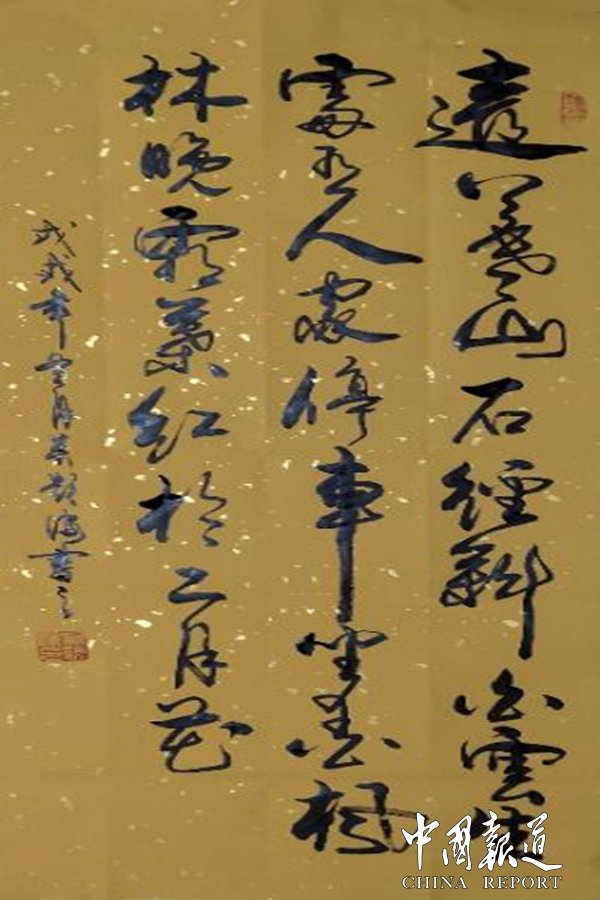 遠上寒山石經斜白雲生
處有人家停車坐愛楓
林晚霜葉紅於二月花
戊戌年月海書之
中國報道
CHINA REPORT